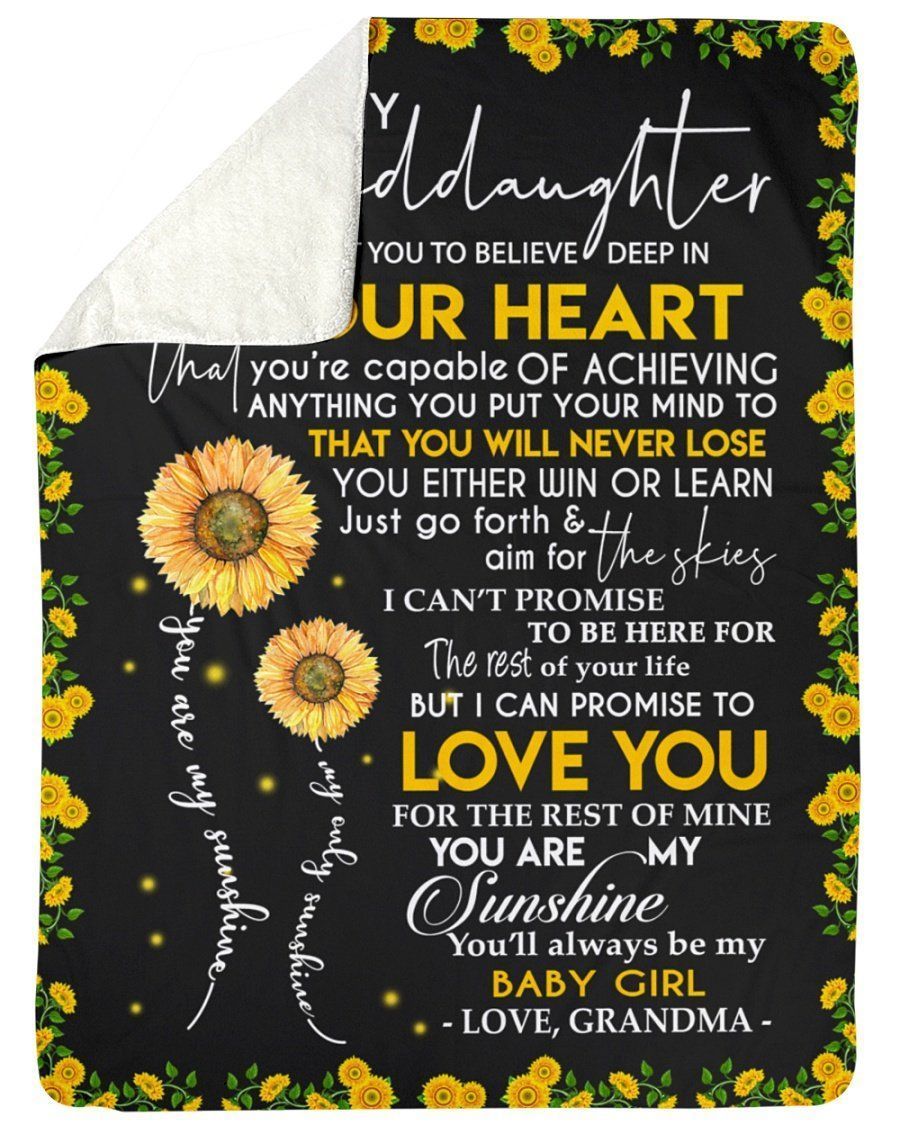 Y
ddaughter
YOU TO BELIEVE DEEP IN
UR HEART
that you're capable OF ACHIEVING
ANYTHING YOU PUT YOUR MIND TO
THAT YOU WILL NEVER LOSE
YOU EITHER WIN OR LEARN
Just go forth &
aim for the skies
I CAN'T PROMISE
TO BE HERE FOR
The rest of your life
BUT I CAN PROMISE TO
LOVE YOU
FOR THE REST OF MINE
YOU ARE MY
Sunshine
You'll always be my
BABY GIRL
- LOVE, GRANDMA -
you are my sunshine
my only sunshine